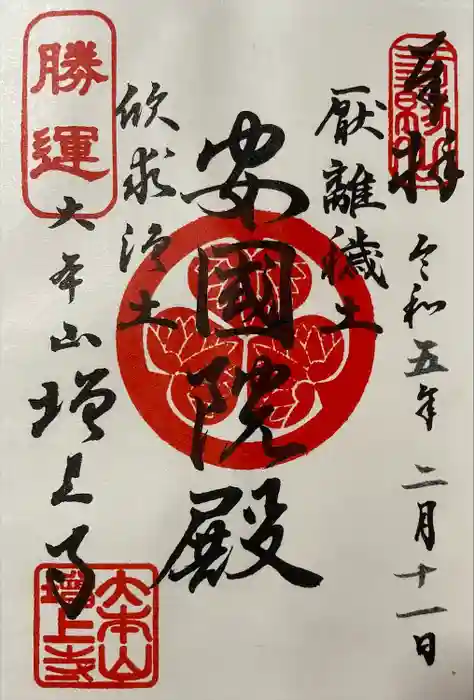 奉拝
令和五年 二月十一日
厭離穢土
安國院殿
欣求浄土
勝運
大本山 増上寺
大本山
増上寺